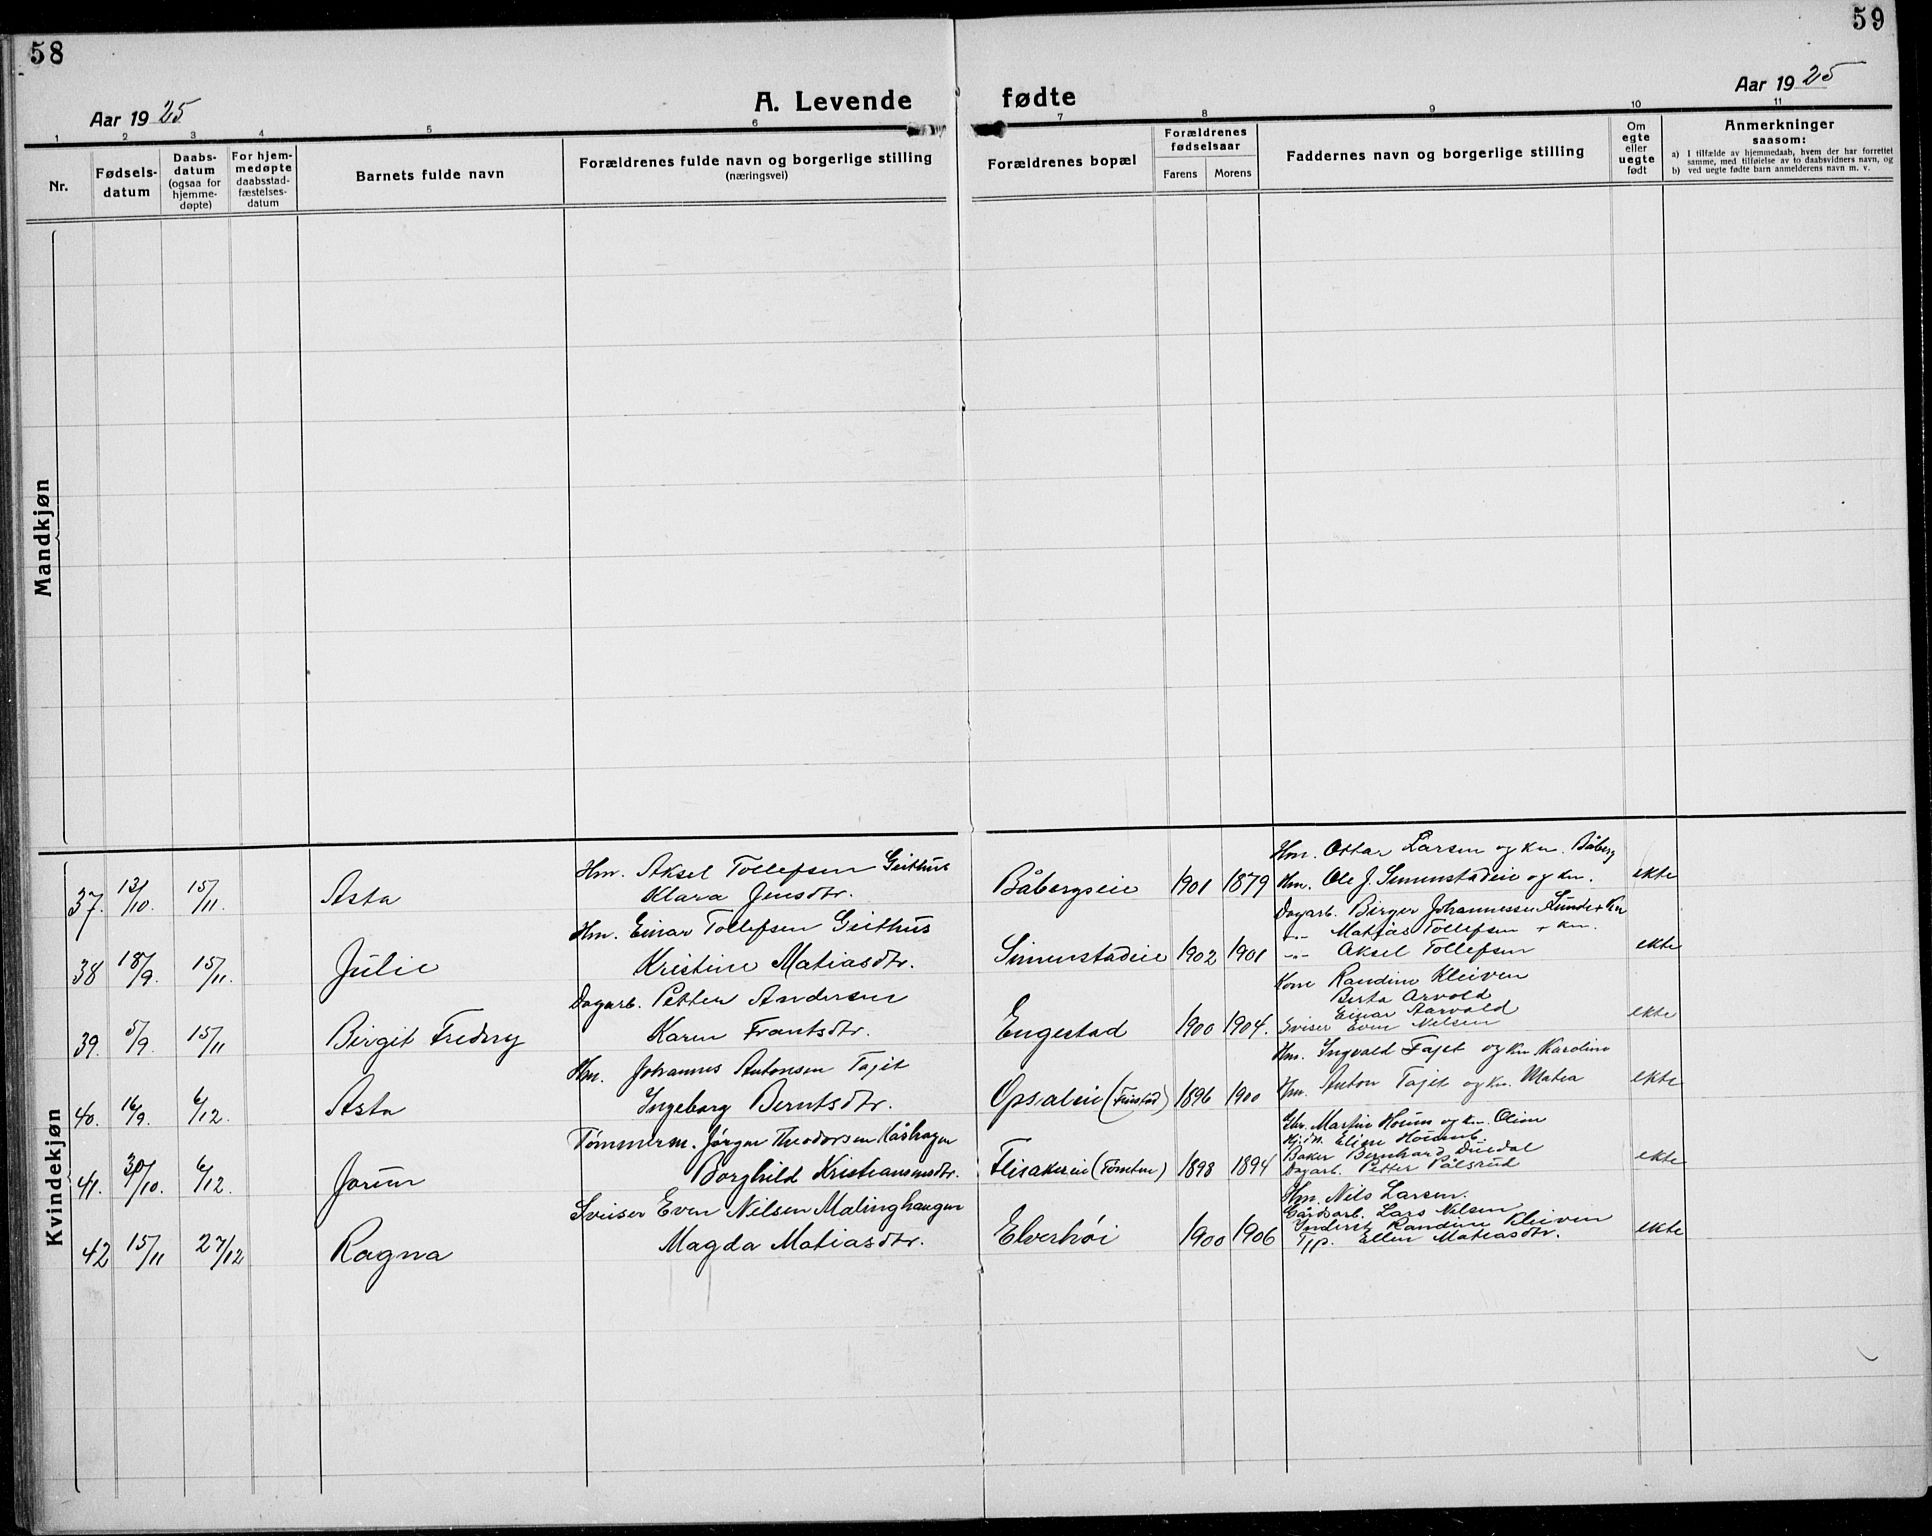 58
59
Aar 1925
A. Levende fødte
Aar 1925
1 2 3 4 5 6 7 8 9 10 11
Nr.
Fødsels-
datum
Daabs-
datum
(ogsaa for
hjemme-
døpte)
For hjem-
medøpte
daabsstad-
fæstelses-
datum
Barnets fulde navn
Forældrenes fulde navn og borgerlige stilling
(næringsvei)
Forældrenes bopæl
Forældrenes
fødselsaar
Farens Morens
Faddernes navn og borgerlige stilling
Om
egte
eller
uegte
født
Anmerkninger
saasom:
a) I tilfælde av hjemmedaab, hvem der har forrettet
samme, med tilføielse av to daabsvidners navn, og
b) ved uegte fødte barn anmelderens navn m. v.
Mandkjøn
Kvindekjøn
37. 13/10. 15/11. Asta
Hm. Aksel Tollefsen Geithus
Klara Jensdtr.
Båbergseie 1901 1879
Hm. Ottar Larsen og kn. Båberg
Hm. Ole J. Simenstadeie og kn.
ekte
38 18/9. 15/11. Julie
Hm. Einar Tollefsen Geithus
Kristine Matiasdtr.
Simenstadeie 1902 1901
Dagarb. Birger Johannessen Lunde + kn
-"- Matias Tollefsen + kn.
-"- Aksel Tollefsen
ekte
39. 5/9. 15/11 Birgit Fredny
Dagarb. Petter Andersen
Karen Frantsdtr.
Engestad 1900 1904.
Kone Randine Kleiven
Berta Arvold
Einar Aarvold
Sveiser Even Nilsen
ekte
40. 16/9. 6/12. Asta
Hm. Johannes Antonsen Tajet
Ingeborg Berntsdtr.
Opsaleie (Finstad) 1896 1900
Hm. Ingvald Tajet og kn Karoline
Hm. Anton Tajet og kn. Matea
ekte
41. 30/10. 6/12. Jorun
Tømmerm. Jørgen Theodorsen Kåshagen
Borghild Kristiansensdtr.
Flisakereie (Tømten) 1898 1894
Gbr. Martin Houm og kn. Oline
Eline Houm
Baker Bernhard Duedal
Dagarb. Petter Pålsrud
ekte
42 15/11 27/12 Ragna
Sveiser Even Nilsen Malinghaugen
Magda Matiasdtr.
Elverhøi 1900 1906
Hm. Nils Larsen.
Gårdsarb. Lars Nilsen
Inderst Randine Kleiven
Tjp. Ellen Matiasdtr.
ekte